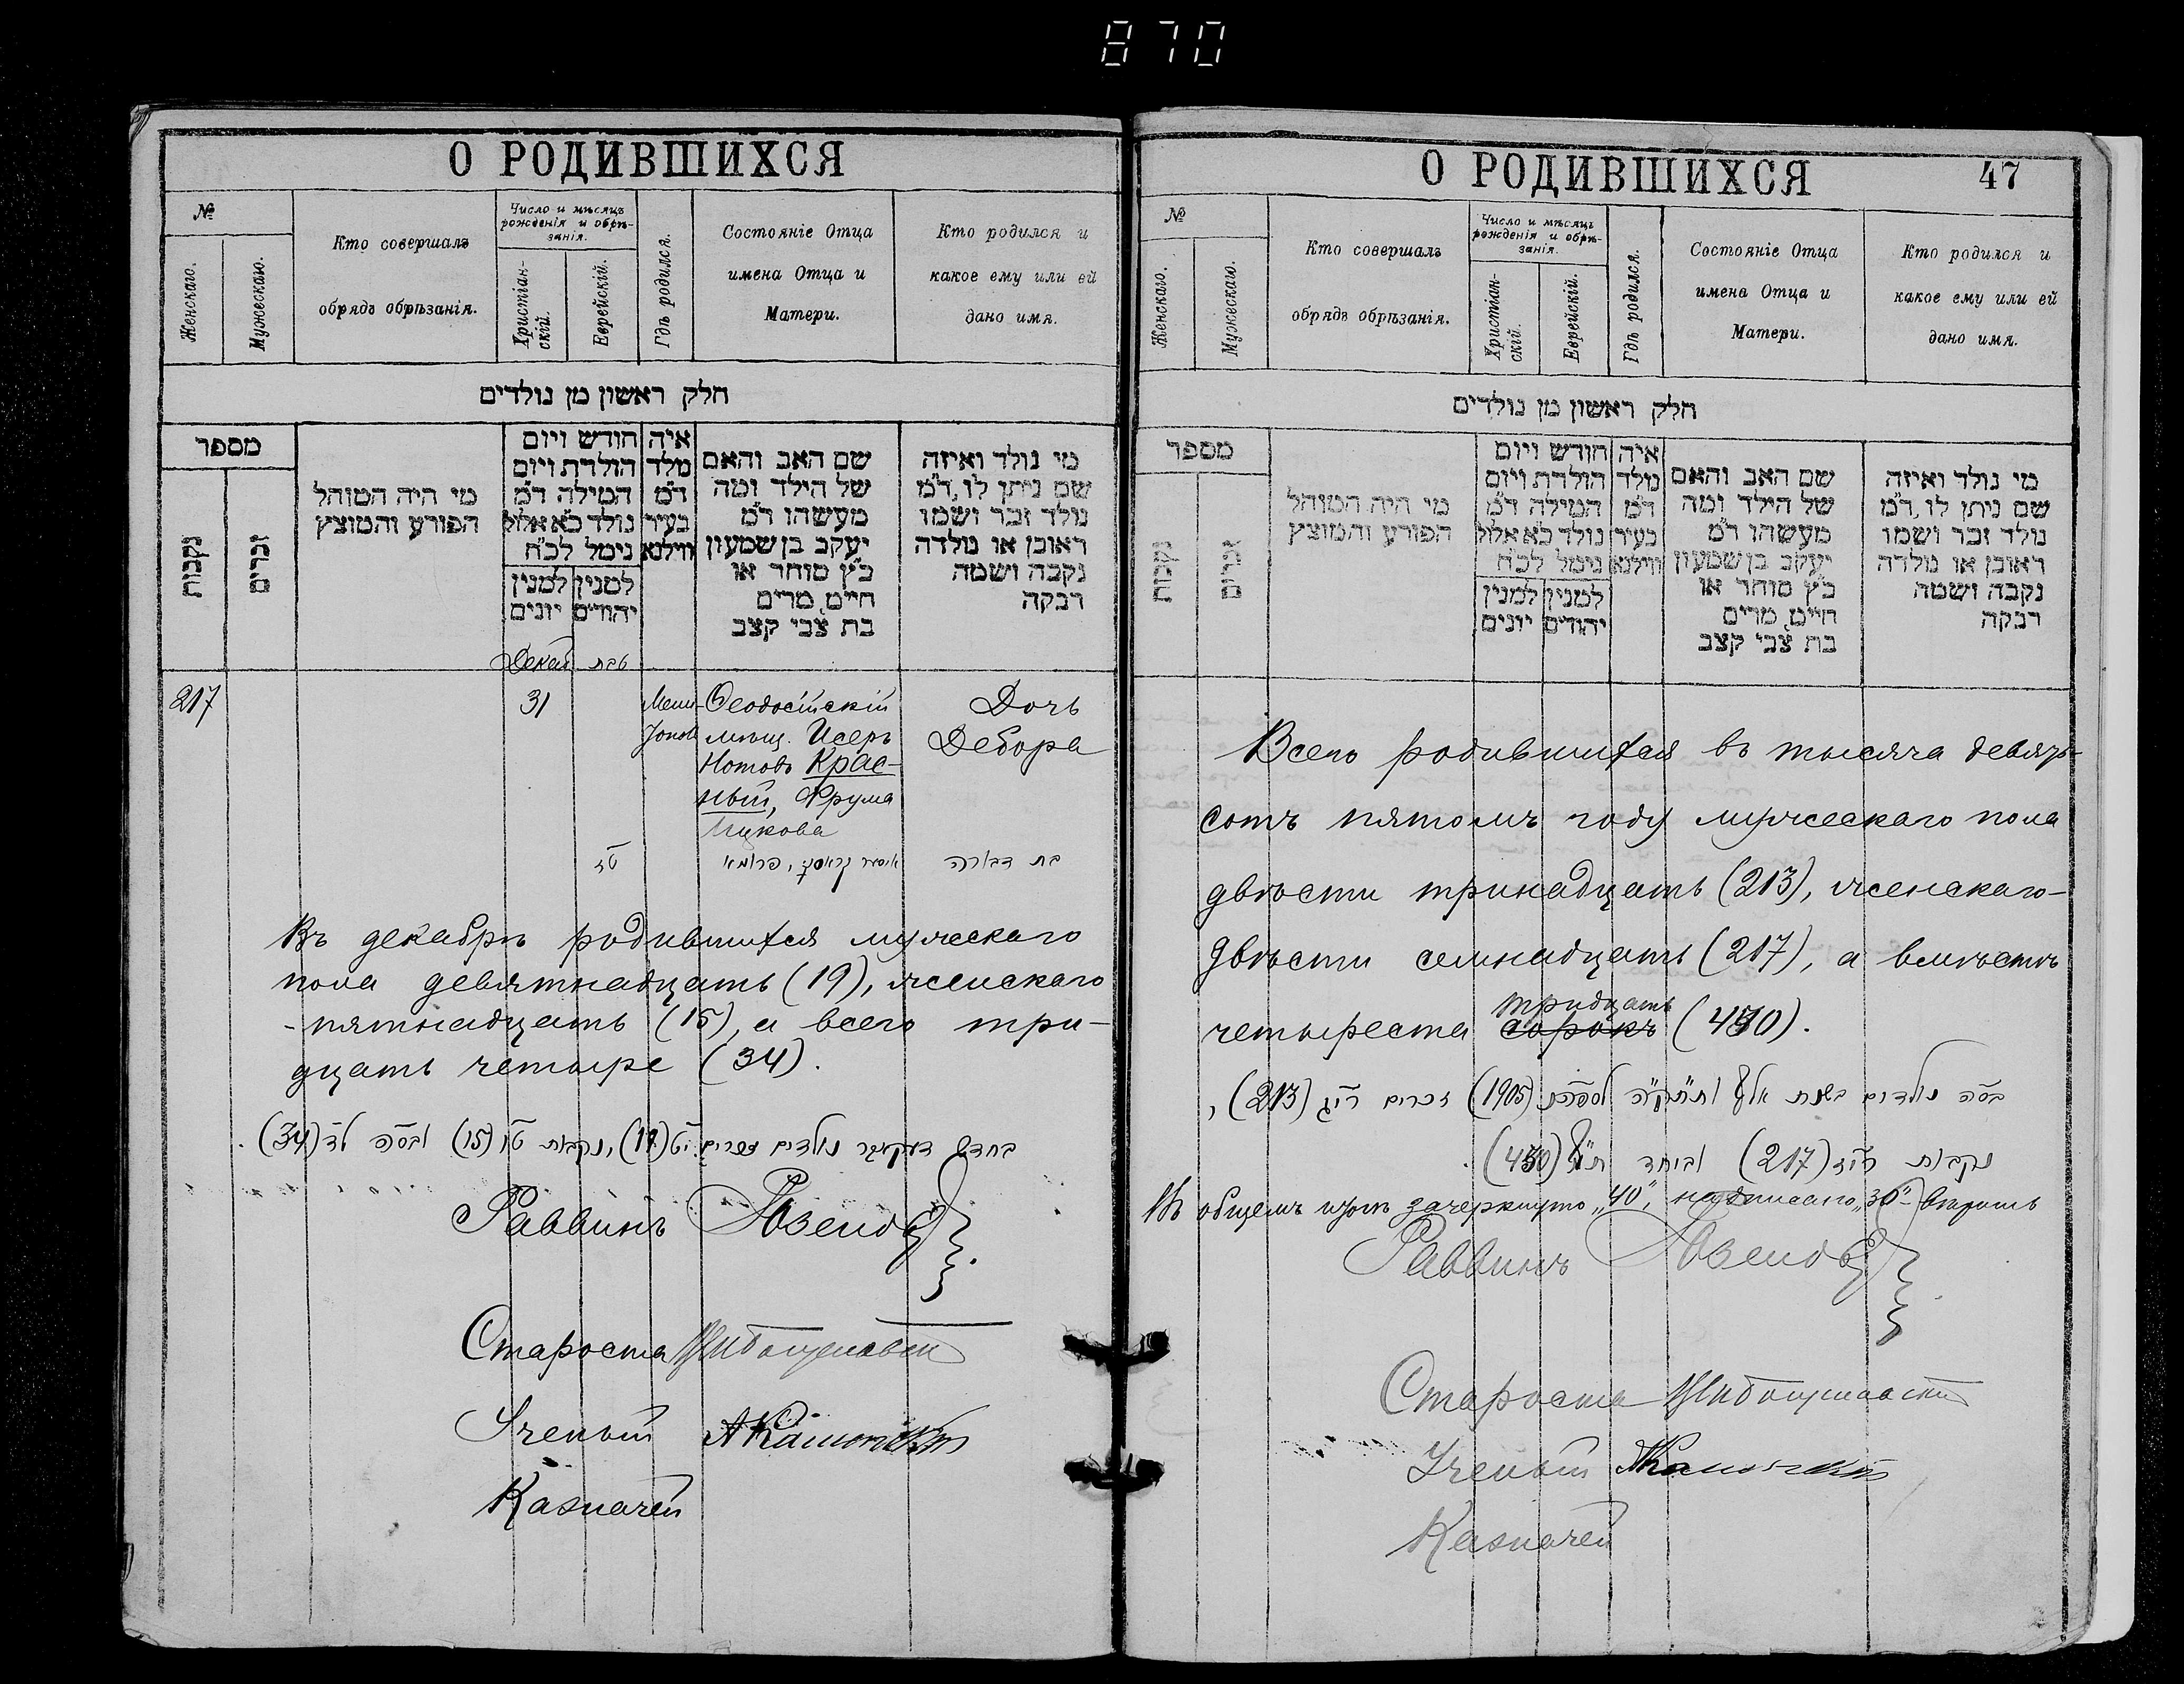 870
О РОДИВШИХСЯ
№
Женскаго.
Мужескаго.
Кто совершалъ
обрядъ обрѣзанія.
Число и мѣсяцъ
рожденія и обрѣ-
занія.
Христіан-
скій.
Еврейскій.
Гдѣ родился.
Состояніе Отца
имена Отца и
Матери.
Кто родился и
какое ему или ей
дано имя.
חלק ראשון מן נולדים
מספר
נקבות
זכרים
מי היה המוהל
הפורע והמוצץ
חודש ויום
הולדת ויום
המילה ד״מ
נולד כ״א אלול
נימל לכ״ח
למנין יהודים
למנין יונים
איה
מלד
ד״מ
בעיר
ווילנא
שם האב והאם
של הילד ומה
מעשהו ד״מ
יעקב בן שמעון
כ״ץ סוחר או
חייט, מרים
בת צבי קצב
מי נולד ואיזה
שם ניתן לו, ד״מ
נולד זכר ושמו
ראובן או נולדה
נקבה ושמה
רבקה
Декаб טבת
217 31 Ѳеодосійскій Дочь
мѣщ. Исеръ Дебора
Нотовъ Крас-
ный, Фрума
Ицкова
בת דבורה
Въ декабрѣ родившихся мужескаго
пола девятнадцать (19), женскаго
- пятнадцать (15), а всего три-
дцать четыре (34).
בחדש דעקאבר נולדים זכרים י״ט (19), נקבות ט״ו (15) ובס״ה ל״ד (34).
Раввинъ
Староста
Ученый
Казначей
О РОДИВШИХСЯ 47
№
Женскаго.
Мужескаго.
Кто совершалъ
обрядъ обрѣзанія.
Число и мѣсяцъ
рожденія и обрѣ-
занія.
Христіан-
скій.
Еврейскій.
Гдѣ родился.
Состояніе Отца
имена Отца и
Матери.
Кто родился и
какое ему или ей
дано имя.
חלק ראשון מן נולדים
מספר
נקבות
זכרים
מי היה המוהל
הפורע והמוצץ
חודש ויום
הולדת ויום
המילה ד״מ
נולד כ״א אלול
נימל לכ״ח
למנין יהודים
למנין יונים
איה
מלד
ד״מ
בעיר
ווילנא
שם האב והאם
של הילד ומה
מעשהו ד״מ
יעקב בן שמעון
כ״ץ סוחר או
חייט, מרים
בת צבי קצב
מי נולד ואיזה
שם ניתן לו, ד״מ
נולד זכר ושמו
ראובן או נולדה
נקבה ושמה
רבקה
Всего родившихся въ тысяча девять-
сотъ пятомъ году мужескаго пола
двѣсти тринадцать (213), женскаго -
двѣсти семнадцать (217), а вмѣстѣ
тридцать
четыреста сорокъ (430).
בס״ה נולדים בשנת (1905) זכרים רי״ג (213),
נקבות רי״ז (217) וביחד ת״ל (430).
Въ общемъ итогѣ зачеркнуто „40", надписано „30" - вѣрить
Раввинъ
Староста
Ученый
Казначей